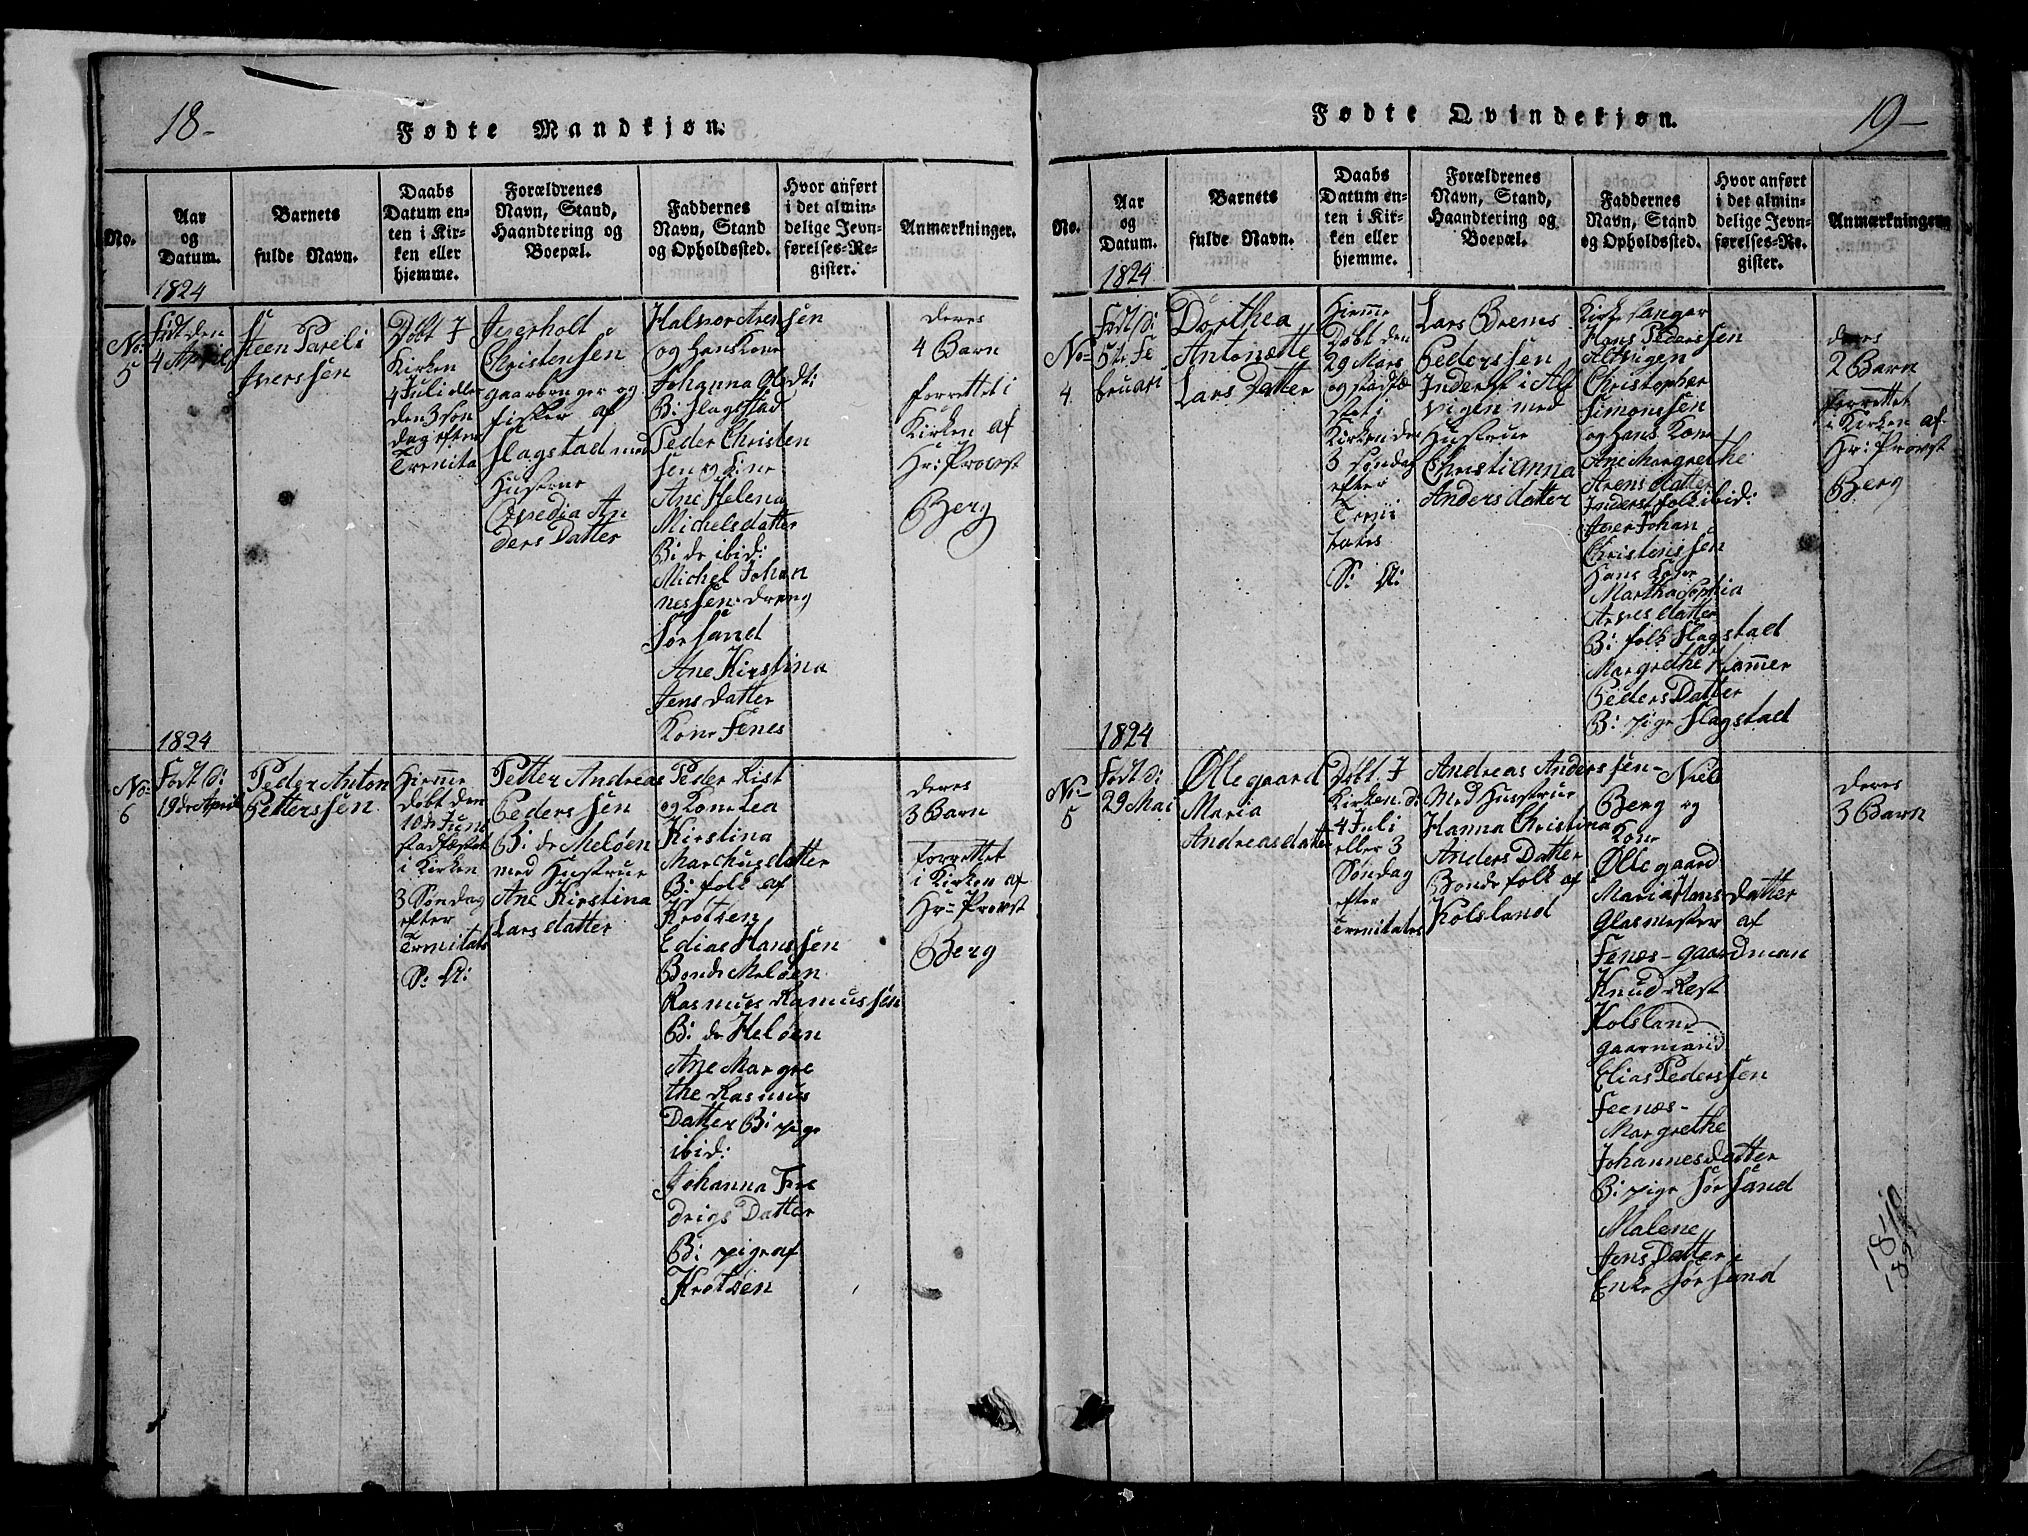 18-
Fødte Mandkjøn.
No.
Aar
og
Datum.
Barnets
fulde Navn.
Daabs
Datum en-
ten i Kir-
ken eller
hjemme.
Forældrenes
Navn, Stand,
Haandtering og
Boepæl.
Faddernes
Navn, Stand
og Opholdssted.
Hvor anført
i det almin-
delige Jevn-
førelses-Re-
gister.
Anmærkninger.
1824
No:
5
Født den
4 April
Steen Pareli
Iverssen
Døbt I
Kirken
4 Juli eller
den 3 Søn
dag efter
Trenita
Christensen
gaarbruger og
fisker af
Flagstad med
Hustrue
An
ders Datter
Halvor Arensen
og Hans Kone
Johanna
B: Flagstad
Peder Christen
sen og
Ane Helena
Michelsdatter
B: de ibid:
Michel Johan
nessen dreng
Sørsand
Ane Kirstina
Jens Datter
Kone Fenes
deres
4 Barn
forrettet i
Kirken af
Hr: Provst
Berg
1824
No:
6
Født d:
19de April
Peder Anton
Petterssen
Hjemme
døbt den
10de Juni
stadfæstet
i Kirken
3 Søndag
efter
Trenitats
S: A:
Petter Andreas
Pederssen
B: de Meløen
med Hustrue
Ane Kirstina
Larsdatter
Peder Rist
og Kone Lea
Kirstina
Marchusdatter
B: folk af
Krotøen
Edias Hanssen
Bonde Meløen
Rasmus Ramussen
B: de Heløen
Ane Margre
the Rasmus
Datter B: pige
ibid:
Johanna Fre
drigs Datter
B: pige af
Krotøen
deres
3 Barn
forrettet
i Kirken af
Hr: Provst
Berg
Fødte Qvindekjøn.
19-
No.
Aar
og
Datum.
Barnets
fulde Navn.
Daabs
Datum en-
ten i Kir-
ken eller
hjemme.
Forældrenes
Navn, Stand,
Haandtering og
Boepæl.
Faddernes
Navn, Stand
og Opholdssted.
Hvor anført
i det almin-
delige Jevn-
førelses-Re-
gister.
Anmærkningen
1824
No:
4
Født d:
5te Fe
bruari
Dorthea
Antonette
Lars Datter
Hjemme
Døbt den
29 Mars
og stadfæ
stet i
Kirken den
3 Søndag
efter
Treni
tates
S: A:
Lars Brems
Pederssen
Inderst i Al
vigen med
Hustrue
Christianna
Andersdatter
Kirkesanger
Hans Pederssen
Altvigen
Christopher
Simonssen
og Hans Kone
Ane Margrethe
Arensdatter
Inderst folk ibid:
Johan
Christenssen
Hans Kone
Martha Sophia
Arnesdatter
B: folk Flagstad
Margrethe Hammer
Peders Datter
B: pige Flagstad
deres
2 Barn
forrettet
i Kirken af
Hr: Provst
Berg
1824
No:
5
Født d:
29 Mai
Øllegaard
Maria
Andreasdatter
Døbt I
Kirken d:
4 Juli
eller 3
Søndag
efter
Trenitates
Andreas Anderssen
med Hustrue
Hanna Christina
Anders Datter
Bonde folk af
Kolsland
Niels
Berg og
Kone
Øllegaard
Maria Hans Datter
Glasmester af
Fenæs - gaardman
Knud Rest
Kolsland
gaarmand
Elias Pederssen
Feenæs-
Margrethe
Johannesdatter
B: pige Sørsand
Malene
Jens Datter
Enke Sørsand
deres
3 Barn